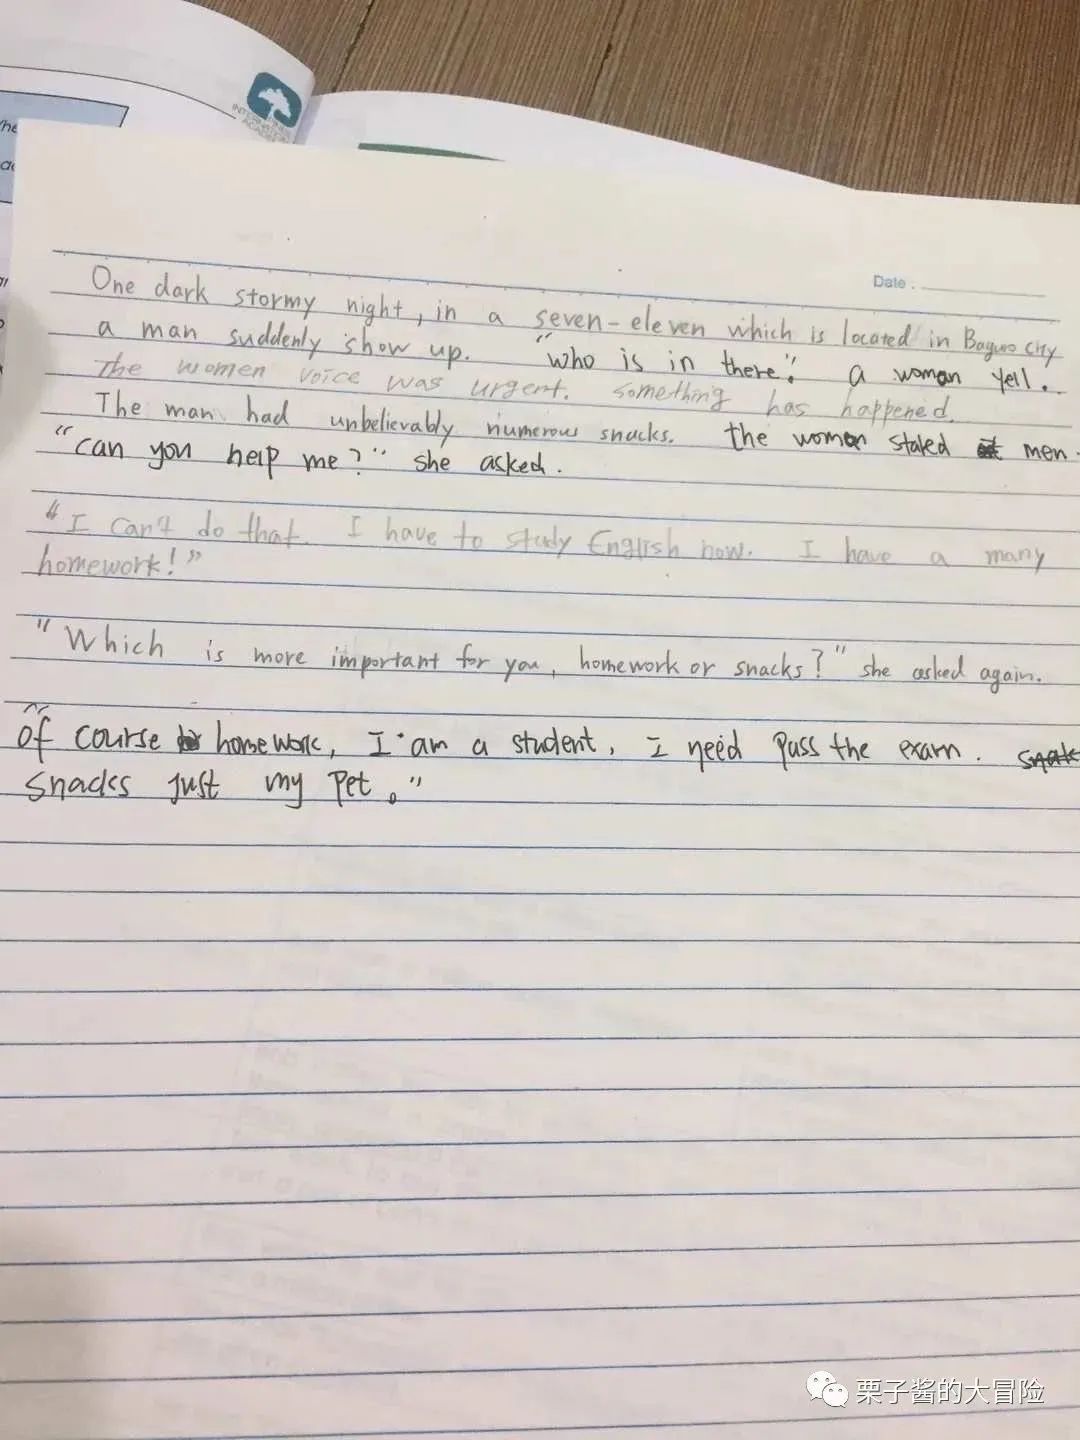 INTERNATIONAL
Date:
One dark stormy night, in a seven-eleven which is located in Baguio city
a man suddenly show up. "who is in there." a woman yell.
The women voice was urgent. Something has happened.
The man had unbelievably numerous snacks. the woman staled men.
"can you help me?" she asked.
"I can't do that. I have to study English now. I have a many
homework!"
"Which is more important for you, homework or snacks?" she asked again.
"of course homework, I am a student, I need pass the exam.
snacks just my pet."
栗子酱的大冒险